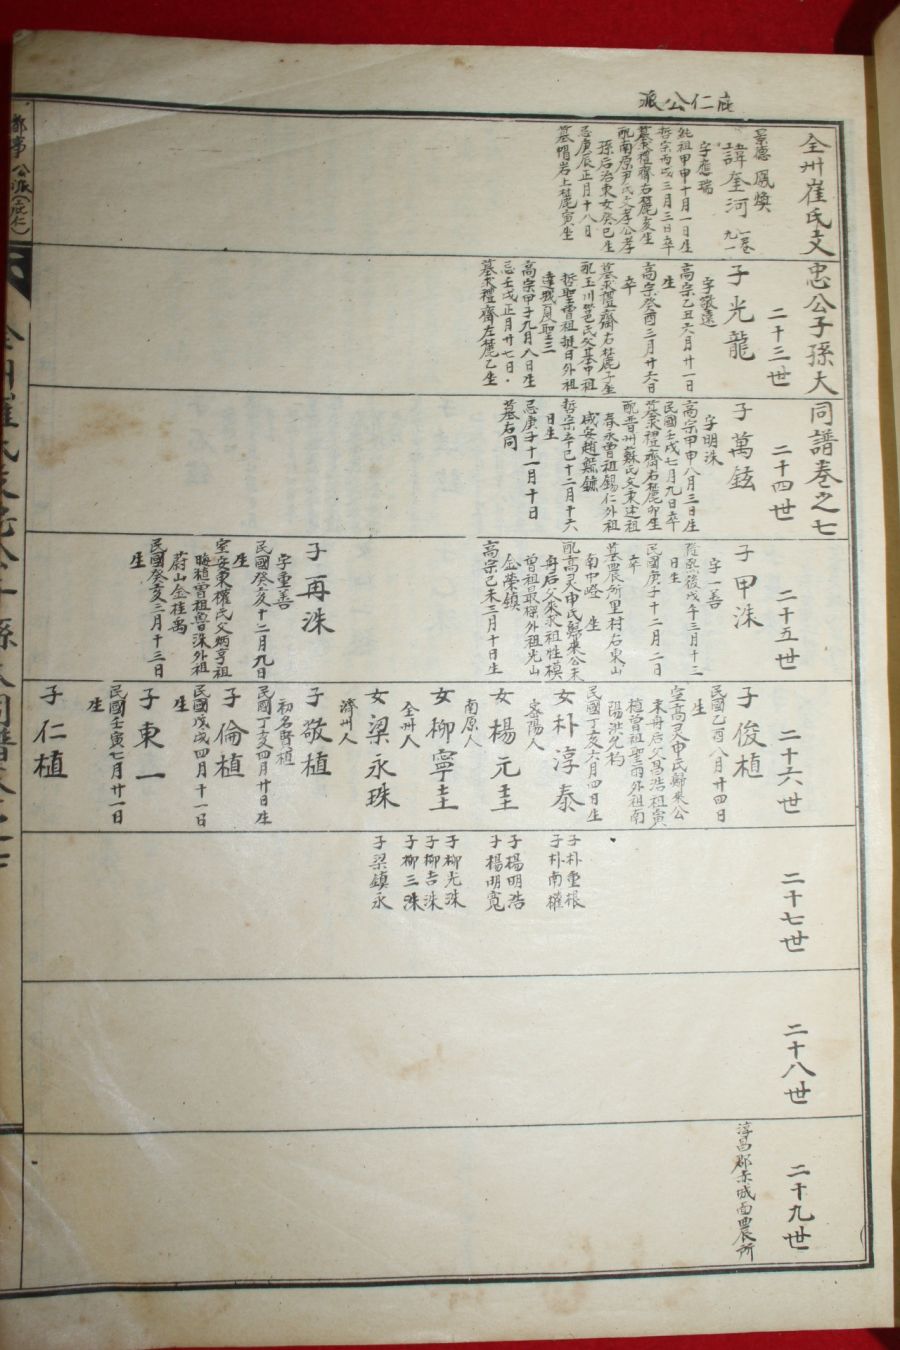 庇仁公派
全州崔氏文忠公子孫大同譜卷之七
景德 鳳煥
諱奎河
字應瑞
純祖甲申十月一日生
哲宗丙戌三月三日卒
墓求禮齋右麓亥坐
配南原尹氏父孝公孝
孫后治東女癸巳生
忌庚辰正月十八日
墓帽岩上麓寅坐
二十三世
子光龍
字敬遠
高宗乙丑六月廿一日
生
高宗癸酉三月廿六日
卒
墓求禮齋右麓子坐
配玉川邕氏父基中祖
哲聖曾祖挺日外祖
達城夏聖三
高宗甲子九月八日生
忌壬戌正月廿七日
墓求禮齋左麓乙坐
二十四世
子萬鉉
字明洙
高宗甲申八月三日生
民國壬戌七月九日卒
墓求禮齋右麓卯坐
配晋州蘇氏父東述祖
春永曾祖錫仁外祖
咸安趙鏞鑣
哲宗辛巳十二月十六
日生
忌庚子十一月十日
墓右同
二十五世
子甲洙
字一善
隆熙後戊午三月十二
日生
民國庚子十二月二日
卒
墓農所里村右東山
南中嶝 坐
配高灵申氏歸來公末
舟后父來求祖牲模
曾祖最樑外祖光山
金榮鎮
高宗己未三月十日生
子再洙
字重善
民國癸亥十二月九日
生
室安東權氏父炳亨祖
晦植曾祖魯洙外祖
蔚山金桂禹
民國癸亥三月十三日
生
二十六世
子俊植
民國乙酉八月廿四日
生
室高灵申氏歸來公
末舟后父萬浩祖寅
植曾祖聖雨外祖南
陽洪允杓
民國丁亥六月四日生
女朴淳泰
密陽人
女楊元圭
南原人
女柳寧圭
全州人
女梁永珠
濟州人
子敬植
初名賢植
民國丁丈四月廿日生
子倫植
民國戊戌四月十一日
生
子東一
民國壬寅七月廿一日
生
子仁植
二十七世
子朴重根
子朴南權
子楊明浩
子楊明寬
子柳光洙
子柳吉洙
子柳三洙
子梁鎮永
二十八世
二十九世
淳昌郡赤城面農所
都事公派(庇仁)